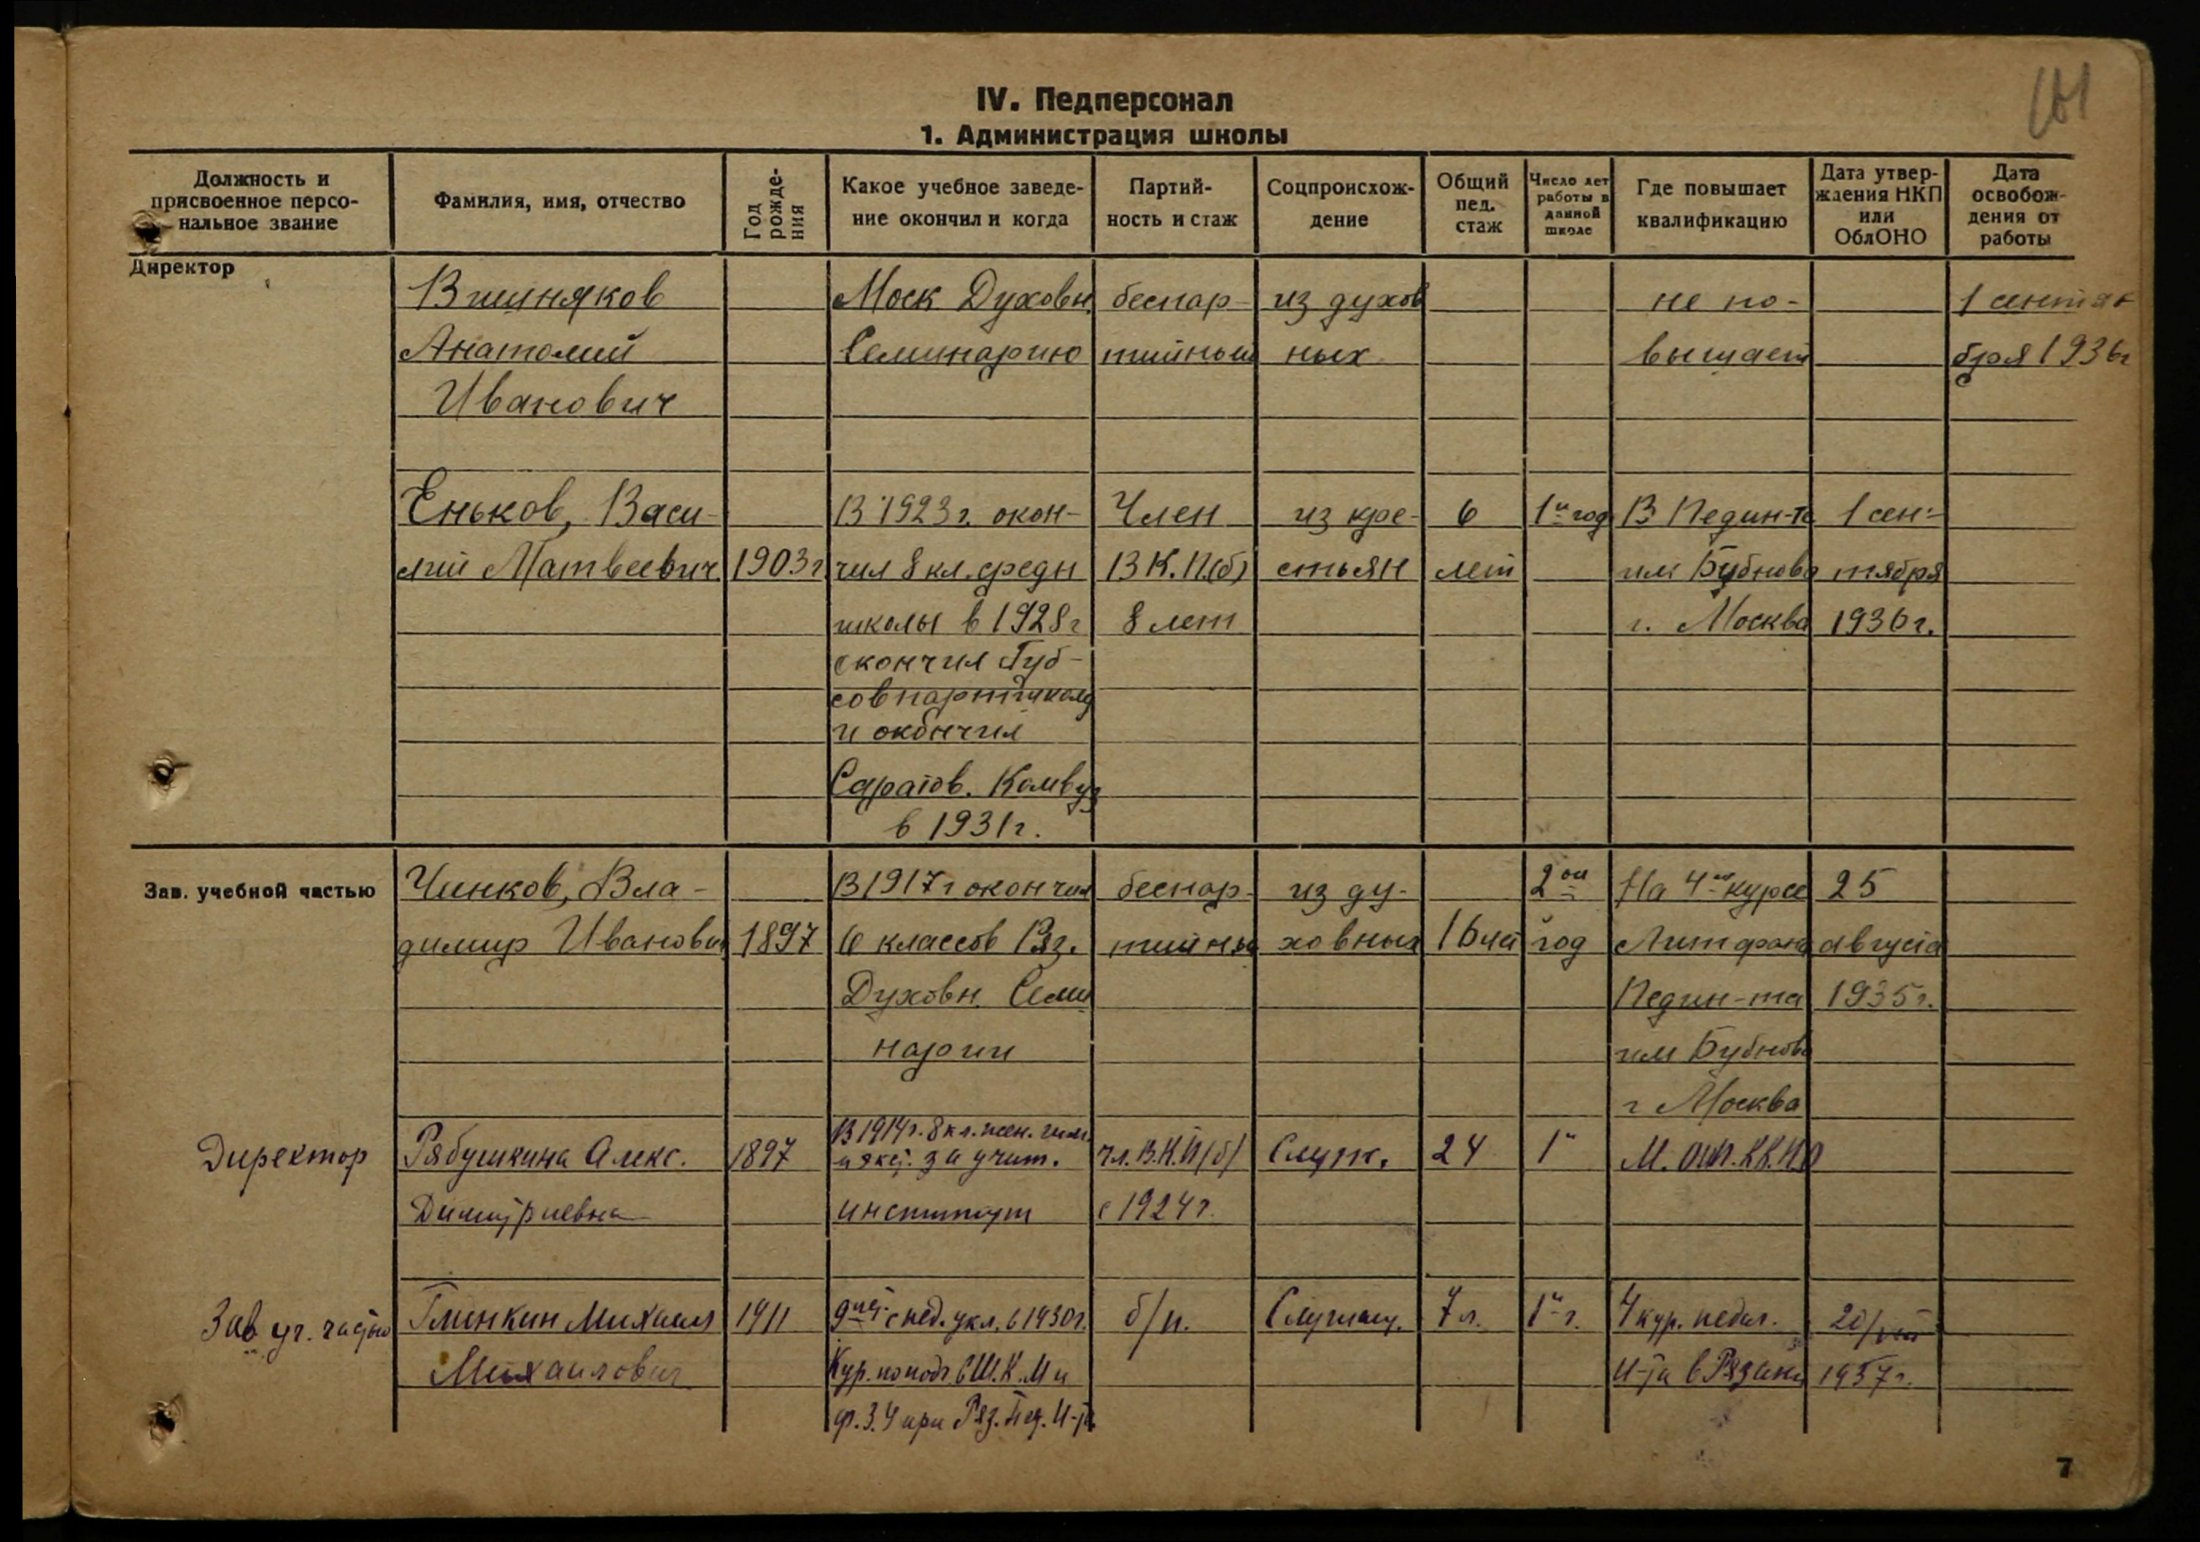 IV. Педперсонал
1. Администрация школы
Должность и
присвоенное персо-
нальное звание
Фамилия, имя, отчество
Год
рожде-
ния
Какое учебное заведе-
ние окончил и когда
Партий-
ность и стаж
Соцпроисхож-
дение
Общий
пед.
стаж
Число лет
работы в
данной
школе
Где повышает
квалификацию
Дата утвер-
ждения НКП
или
ОблОНО
Дата
освобож-
дения от
работы
Директор
Вишняков
Анатолий
Иванович
Моск Духовн.
Семинарию
беспар-
тийный
из духов
ных
не по-
вышает
1 сентя
бря 1936г
Еньков, Васи-
лий Матвеевич
1903г.
В 1923г. окон-
чил 8 кл. средн
школы в 1928г
окончил Губ-
совпартшколу
и окончил
Саратов. Комвуз
в 1931г.
Член
ВК.П.(б)
8 лет
из кре-
стьян
6
лет
1й год
В Педин-те
им Бубнова
г. Москва
1 сен-
тября
1936г.
Зав. учебной частью
Чинков, Вла-
димир Иванович
1897
В 1917г окончил
6 классов Ряз.
Духовн. Семи
нарии
беспар-
тийный
из ду-
ховных
16 лет
2ой
год
На 4м курсе
Литфака
Педин-та
им Бубнова
г Москва
25
августа
1935г.
Директор
Рябушкина Алекс.
Димитриевна
1897
В 1914г. 8 кл. жен. гим.
и экс. за учит.
институт
чл. В.К.П(б)
с 1924г.
Служ.
24
1й
Зав уч. частью
Глинкин Михаил
Михаилович
1911
9лет. с пед. укл. в 1930г.
Кур. по подг в Ш.К.М и
ф.З.У при Ряз. Пед. И-те
б/п.
Служащ.
7 л.
1й г.
4 кур. педаг.
и-та в Рязани
20/VIII
1937г.
7